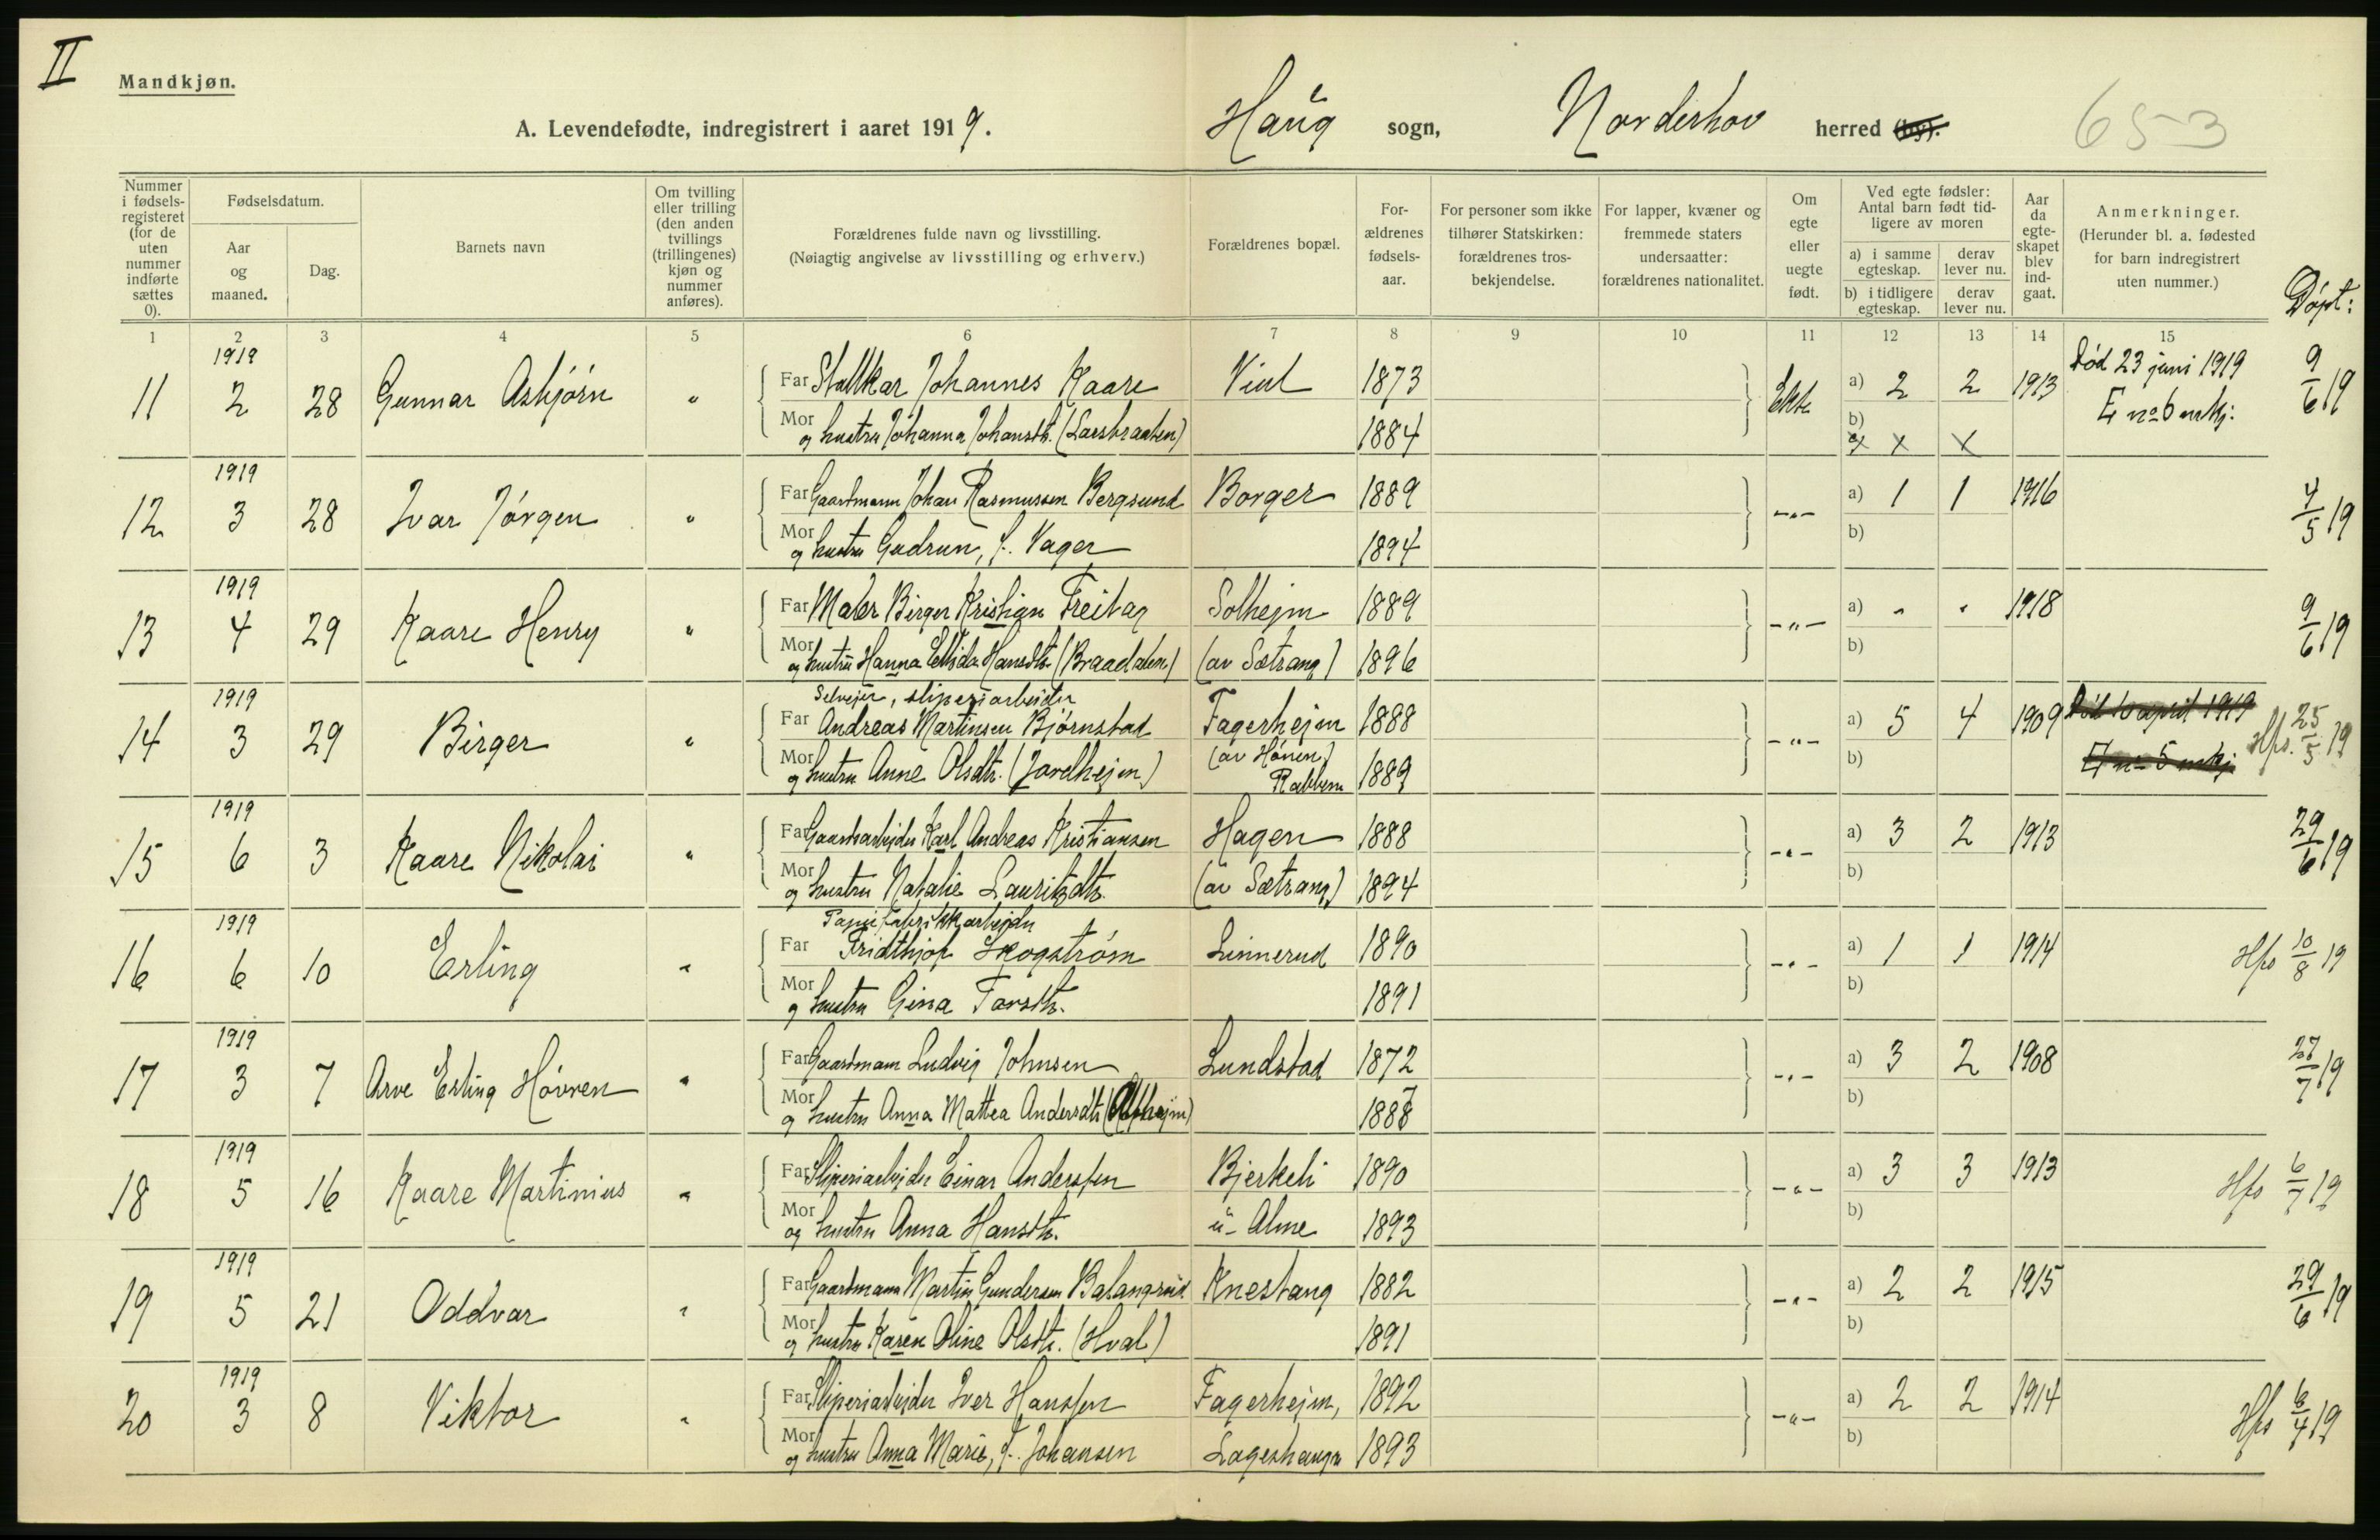 II
Mandkjøn.
A. Levendefødte, indregistrert i aaret 1919.
Haug sogn, Norderhov herred (by).
653
Nummer i fødsels-registeret (for de uten nummer indførte sættes 0).
Fødselsdatum.
Aar og maaned.
Dag.
Barnets navn
Om tvilling eller trilling (den anden tvillings (trillingenes) kjøn og nummer anføres).
Forældrenes fulde navn og livsstilling.
(Nøiagtig angivelse av livsstilling og erhverv.)
Forældrenes bopæl.
For-ældrenes fødsels-aar.
For personer som ikke tilhører Statskirken: forældrenes tros-bekjendelse.
For lapper, kvæner og fremmede staters undersaatter: forældrenes nationalitet.
Om egte eller uegte født.
Ved egte fødsler: Antal barn født tid-ligere av moren
a) i samme egteskap.
derav lever nu.
b) i tidligere egteskap.
derav lever nu.
Aar da egte-skapet blev ind-gaat.
Anmerkninger.
(Herunder bl. a. fødested for barn indregistrert uten nummer.)
Døpt:
1 2 3 4 5 6 7 8 9 10 11 12 13 14 15
1919
11 2 28 Gunnar Asbjørn " Far Johannes Kaare Viul 1873 Ekte a) 2 2 1913 Død 23 juni 1919 9/6 19
Mor og hustru Johanna Johansdtr. (Larsbraaten) 1884 b) E no 6 mkj.
x x x
1919
12 3 28 Ivar Jørgen " Far Gaardmann Johan Rasmussen Bergsund Borger 1889 -"- a) 1 1 1916 4/5 19
Mor og hustru Gudrun, f. Vager 1894 b)
1919
13 4 29 Kaare Henry " Far Maler Birger Kristian Freitag Solhejm 1889 -"- a) " " 1918 9/6 19
Mor og hustru Hanna Ellida Hansdtr. (Braadalen) (av Sætrang) 1896 b)
1919
Selveier, sliperiarbeider
14 3 29 Birger " Far Andreas Martinsen Bjørnstad Fagerhejm 1888 -"- a) 5 4 1909 Død 10 april 1919 Hfs. 25/5 19
Mor og hustru Anne Olsdtr. (Jordhejm) (av Hønen) Rabben 1889 b) E no 5 mkj
1919
15 6 3 Kaare Nikolai " Far Gaardsarbejder Karl Andreas Kristiansen Hagen 1888 -"- a) 3 2 1913 29/6 19
Mor og hustru Natalie Lauritzdtr. (av Sætrang) 1894 b)
1919
Papirfabrikkarbejder
16 6 10 Erling " Far Fridthjof Skogstrøm Linnerud 1890 -"- a) 1 1 1914 Hfs 10/8 19
Mor og hustru Gina Torsdtr. 1891 b)
1919
17 3 7 Arve Erling Hovren " Far Gaardmann Ludvig Johnsen Lundstad 1872 -"- a) 3 2 1908 27/7 19
Mor og hustru Anna Mattea Andersdtr. 1887 b)
1919
18 5 16 Kaare Martinius " Far Sliperiarbejder Einar Anderssen Bjerkeli 1890 -"- a) 3 3 1913 Hfs 6/7 19
Mor og hustru Anna Hansdtr. u- Alme 1893 b)
1919
19 5 21 Oddvar " Far Gaardmann Martin Gundersen Balangrud Knestang 1882 -"- a) 2 2 1915 29/6 19
Mor og hustru Karen Oline Olsdtr. (Hval) 1891 b)
1919
20 3 8 Viktor " Far Sliperiarbejder Iver Hanssen Fagerhejm, 1892 -"- a) 2 2 1914 Hfs 6/4 19
Mor og hustru Anna Marie, f. Johansen 1893 b)